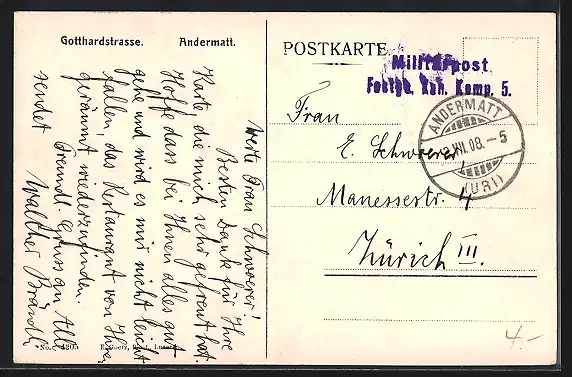 Gotthardstrasse. Andermatt.
Werte Frau Schwerer!
Besten Dank für Ihre
Karte die mich sehr gefreut hat.
Hoffe dass bei Ihnen alles gut
gehe und wird es mir nicht leicht
fallen, das Restaurant von Ihnen
geräumt wiederzufinden.
Freundl. Gruss an Alle
sendet Walther Brändli
No. 420.
E. Goetz, Luzern
POSTKARTE
Militärpost
Festgs. Kan. Komp. 5.
ANDERMATT
XI. 08. – 5
(URI)
Frau
E. Schwerer,
Manessestr. 4
Zürich III.
4.-